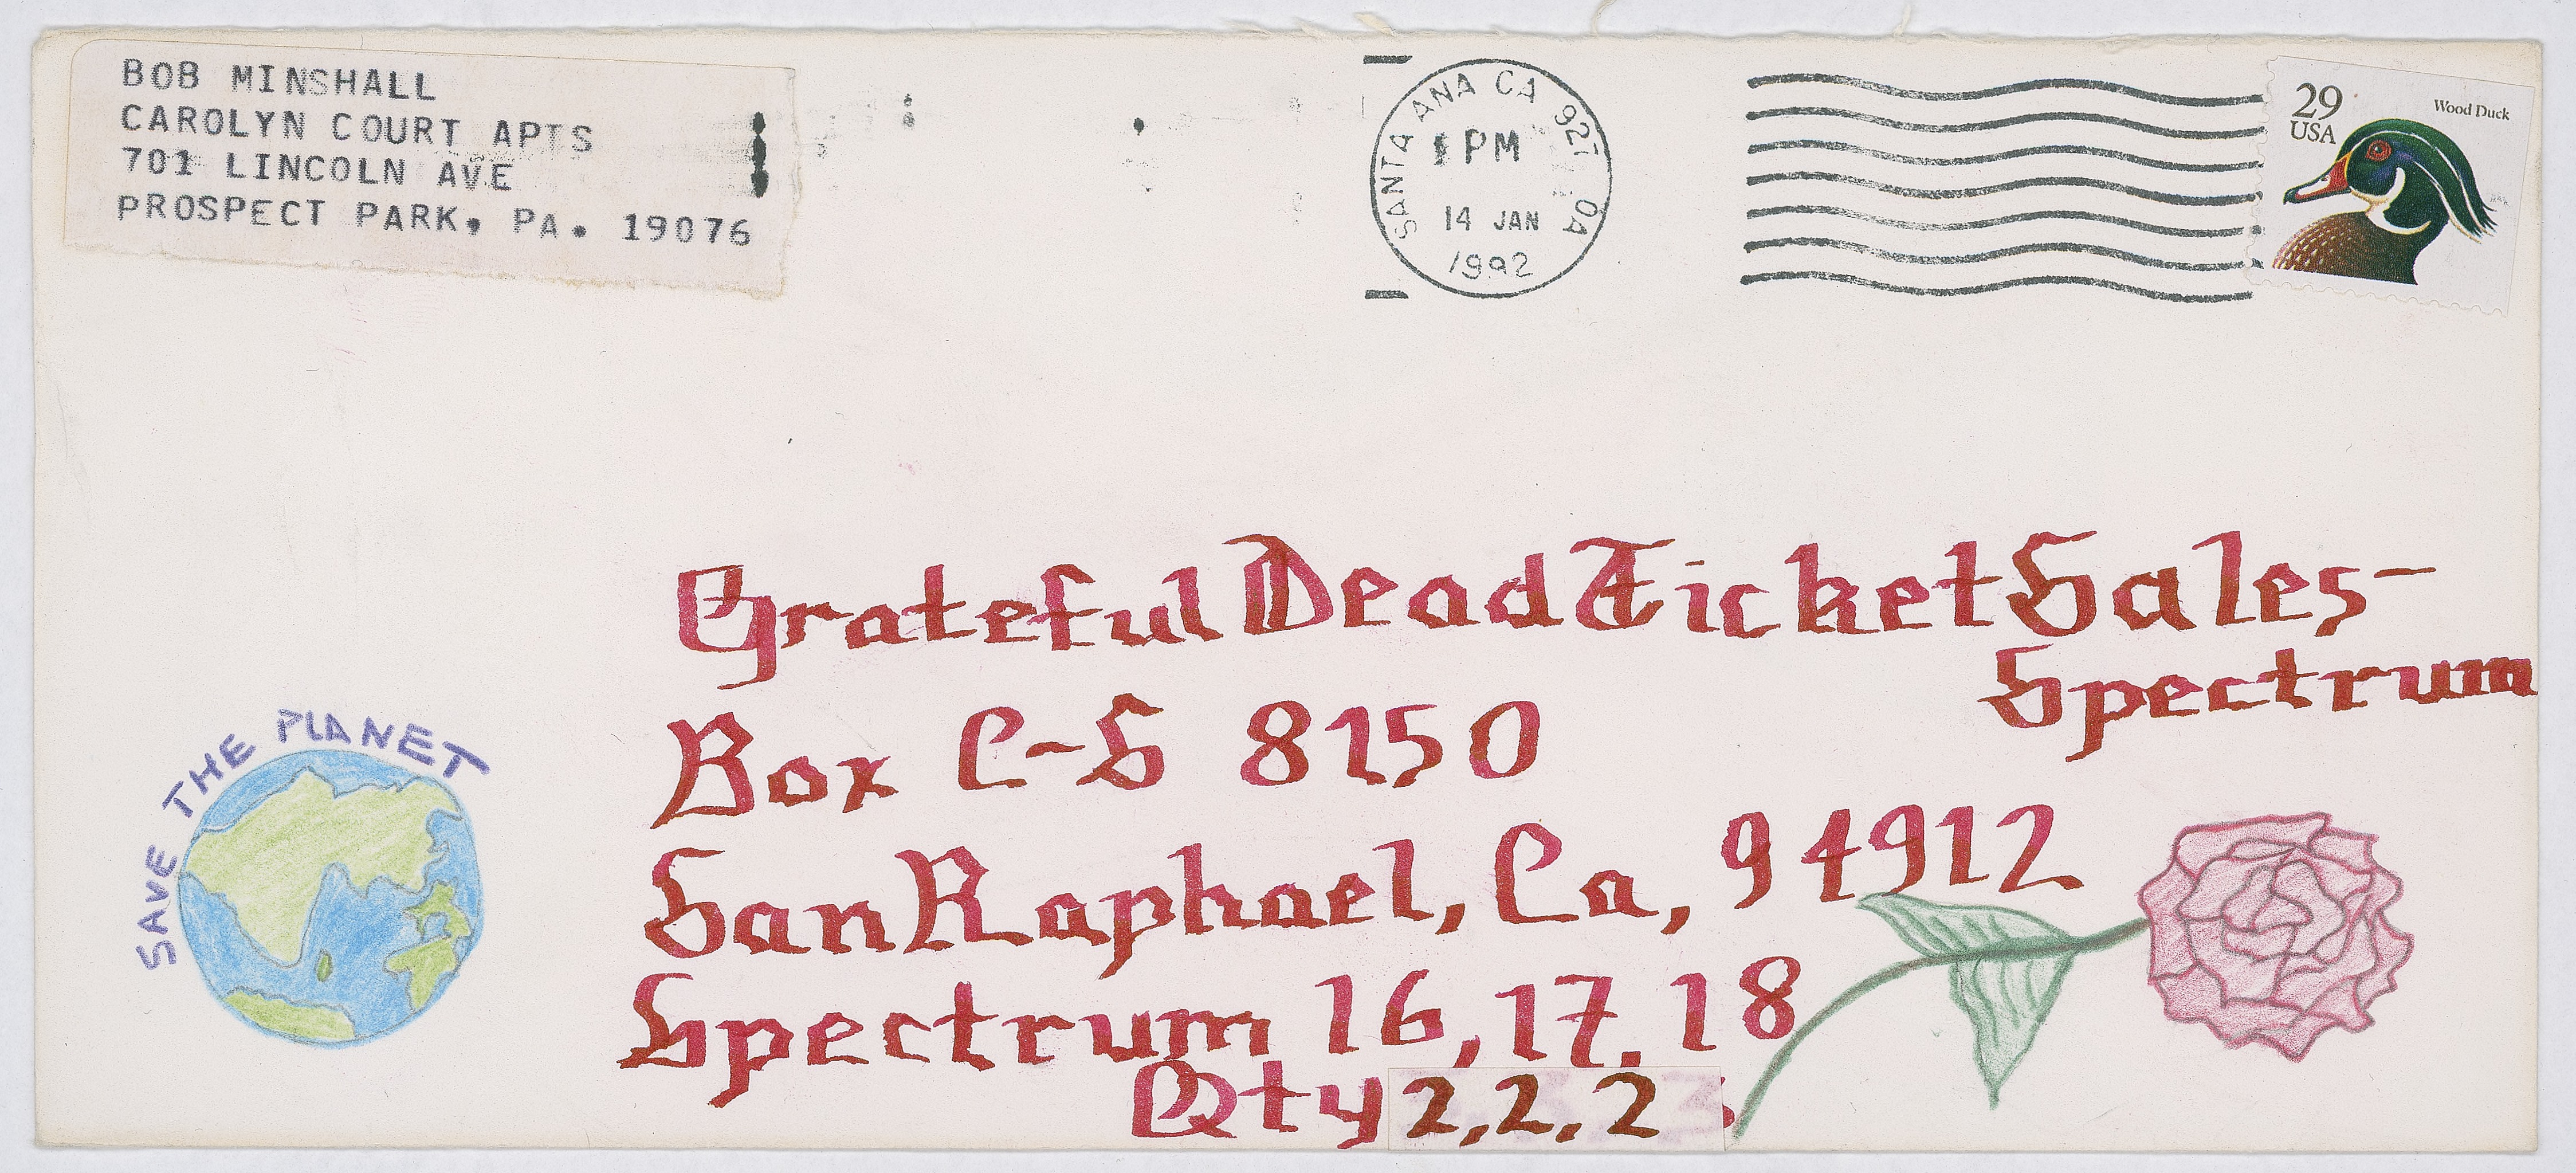 BOB MINSHALL
CAROLYN COURT APTS
701 LINCOLN AVE
PROSPECT PARK, PA. 19076
SANTA ANA CA 927
PM
14 JAN
1992
29
USA
Wood Duck
Grateful Dead Ticket Sales-
Spectrum
Box C-S 8150
San Raphael, Ca, 94912
Spectrum 16,17,18
Qty 2,2,2
SAVE THE PLANET